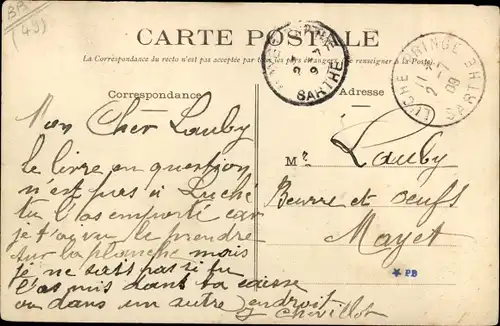 (49)
CARTE POSTALE
La Correspondance du recto n'est pas acceptée par tous les pays étrangers (se renseigner à la Poste)
Correspondance
Adresse
SARTHE
LUCHÉ PRINGÉ
SARTHE
Mon Cher Lauby
le livre en question
n'est pas à Luché
tu l'as emporté car
je t'ai vu le prendre
sur la planche mais
je ne sais pas si tu
l'as mis dans ta caisse
ou dans un autre endroit
Chevillot
Mr Lauby
Beurre et œufs
Mayet
PB